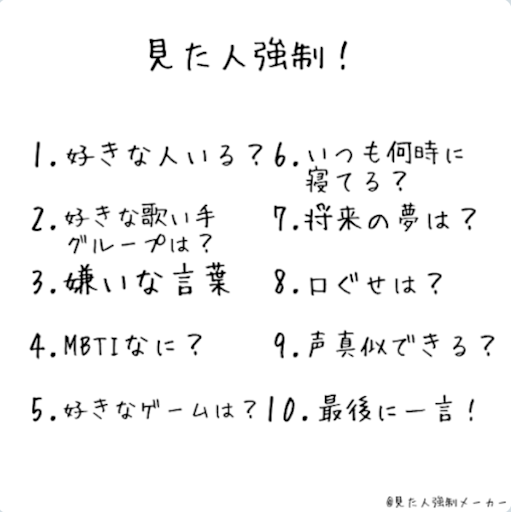 見た人強制！
1.好きな人いる？
2.好きな歌い手
グループは？
3.嫌いな言葉
4.MBTIなに？
5.好きなゲームは？
6.いつも何時に
寝てる？
7.将来の夢は？
8.口ぐせは？
9.声真似できる？
10.最後に一言！
@見た人強制メーカー